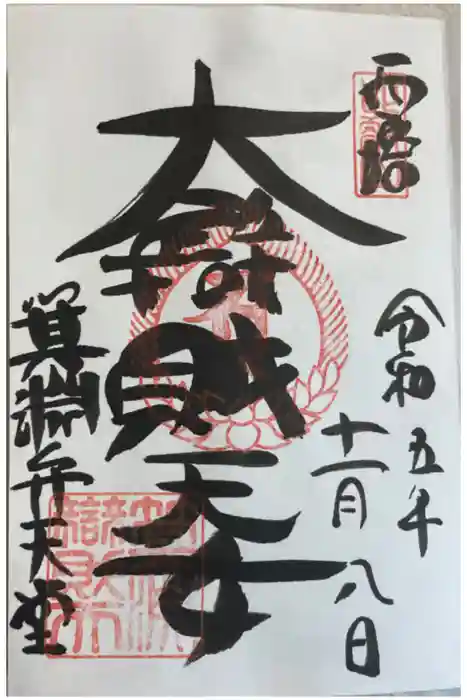 西塔
令和五年
十一月八日
大辯財天女
箕淵弁天堂